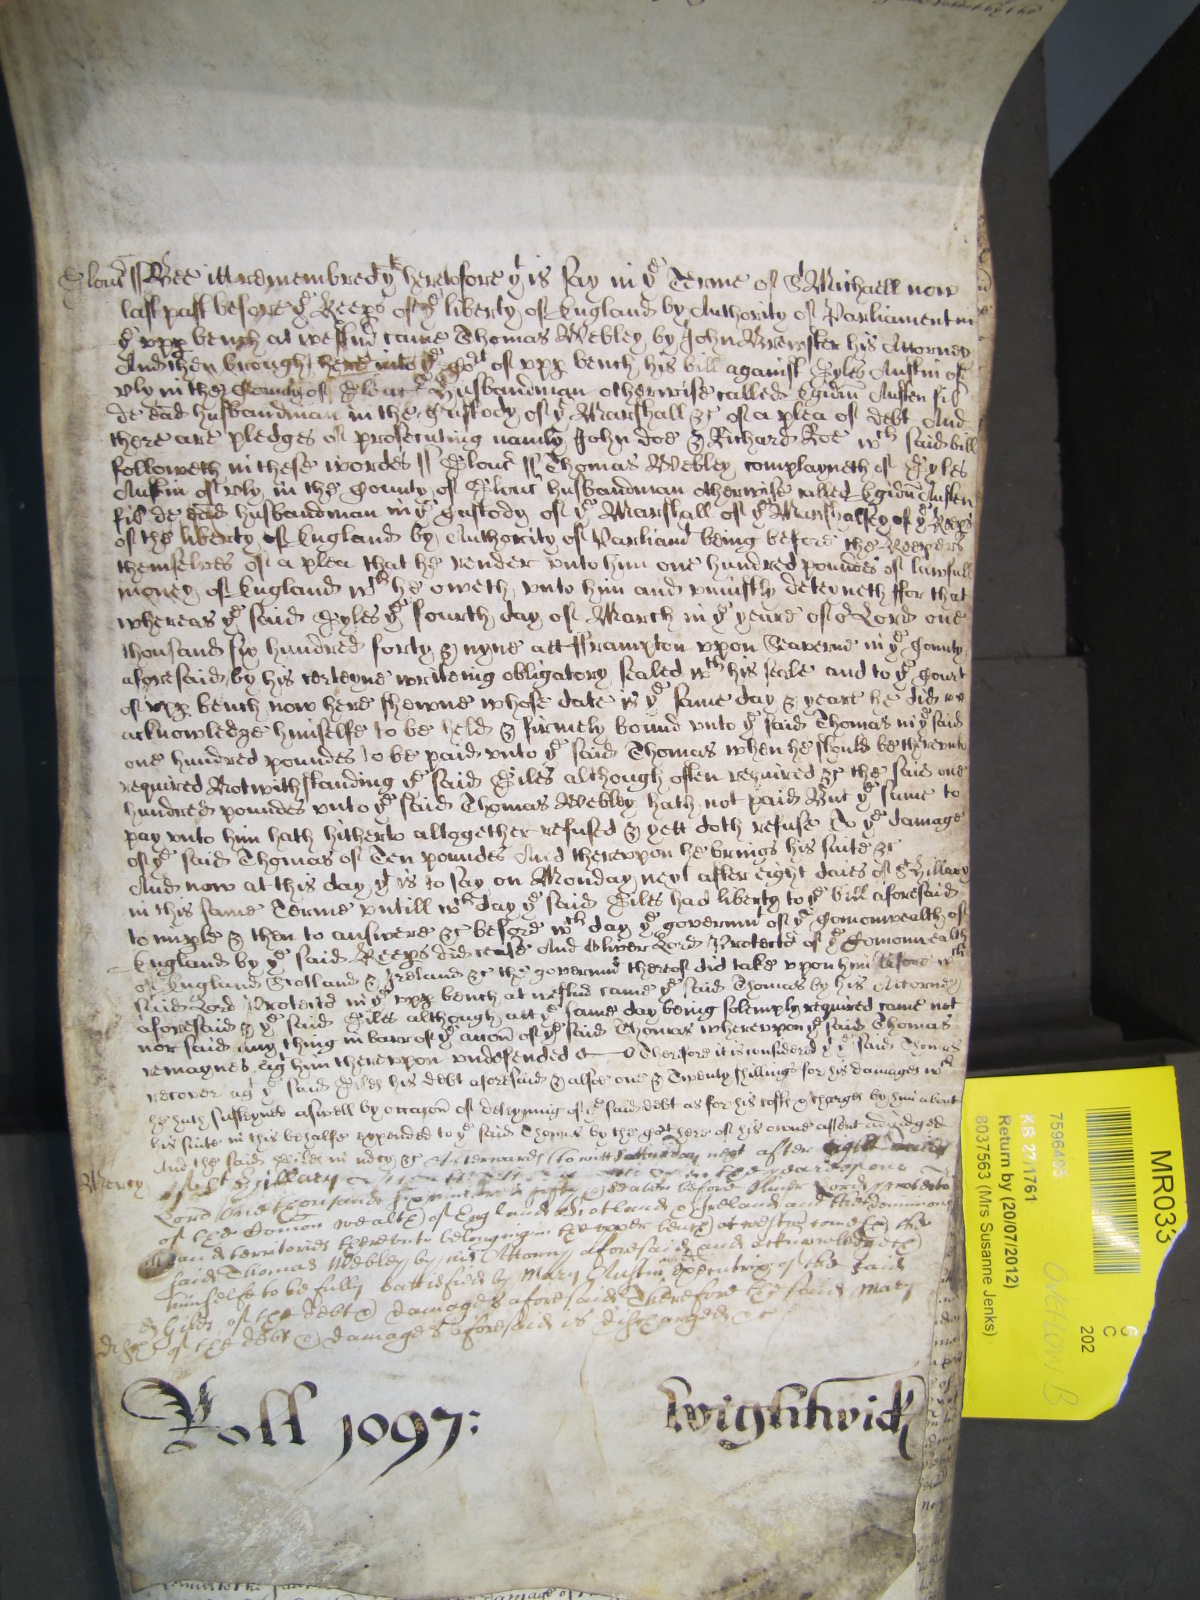 Glouc ss Bee itt remembred yt heretofore yt is say in ye Terme of St Michaell now
last past before ye Keeps of ye liberty of England by Authority of Parliament in
ye upp bench at westm came Thomas Webley by John Brewster his Attorney
And then brought here into ye Cort of upp bench his bill against Gyles Austin of
Vly in the County of Glouc husbandman otherwise called Egidiu Austen fil
de ead husbandman in the Custody of ye Marshall &c of a plea of debt And
there are pledges of prosecuting namly John Doe & Richard Roe wch said bill
followeth in these wordes ss Glouc ss Thomas Webley complayneth of Gyles
Austin of Vly in the County of Glouc husbandman otherwise called Egidiu Austen
fil de ead husbandman in ye Custody of ye Marshall of ye Marshalsey of ye Keeps
of the liberty of England by Authority of Parliamt being before the Keepers
themselves of a plea that he render unto him one hundred poundes of lawfull
money of England wch he oweth unto him and uniustly deteyneth ffor that
whereas ye said Gyles ye fourth day of March in ye yeare of or Lord one
thousand six hundred forty & nyne att fframpton upon Seaverne in ye County
aforesaid by his certeyne writeing obligatory sealed wth his seale and to ye Court
of upp bench now here shewne whose date is ye same day & yeare he did
acknowledge himselfe to be held & firmely bound unto ye said Thomas in ye said
one hundred poundes to be paid unto ye said Thomas when he should be thereunto
required Notwithstanding ye said Giles although often required &c the said one
hundred poundes unto ye said Thomas Webley hath not paid But ye same to
pay unto him hath hitherto altogether refused & yett doth refuse To ye damage
of ye said Thomas of Ten poundes And thereupon he brings his suite &c
And now at this day yt is to say on Monday next after eight daies of St Hillary
in this same Terme untill wch day ye said Giles had liberty to ye bill aforesaid
to imple & then to answere &c before wch day ye governmt of ye Comonwealth of
England by ye said Keeps did cease And Oliver Lord Protector of ye Comonwealth
of England Scotland & Ireland &c the governmt thereof did take upon him before wch
said Lord Protector in ye upp bench at westm came ye said Thomas by his Attorney
aforesaid & ye said Giles although att ye same day being solemply required came not
nor said any thing in barr of ye accon of ye said Thomas whereupon ye said Thomas
remaynes agt him thereupon undefended &c Therefore it is considered yt ye said Thomas
recover agt ye said Giles his debt aforesaid & alsoe one & Twenty shillings for his damages wch
he hath susteyned aswell by occazon of deteyning of ye said debt as for his costs & charges by him about
his suite in this behalfe expended to ye said Thomas by the Cort here of his owne assent adiudged
And the said Giles in mercy &c Afterwards to witt Saturday next after eight
Mercy of St Hillary in the yeare of our
Lord one thousand six hundred before Oliver Lord Protector
of the Common wealth of England Scotland & Ireland and the dominions
and territories thereunto belonging in the upper bench at westm cometh the
said Thomas Webley by his Attorny aforesaid and acknowledgeth
himselfe to be fully sattisfied by Mary Austin executrix of the said
Giles of the debt & damages aforesaid Therefore the said Mary
disch of the debt & damages aforesaid is discharged &c
Roll 1097: Wightwick
MR033
7596495
KB 27/1761
Return by (20/07/2012)
8037563 (Mrs Susanne Jenks)
6
C
202